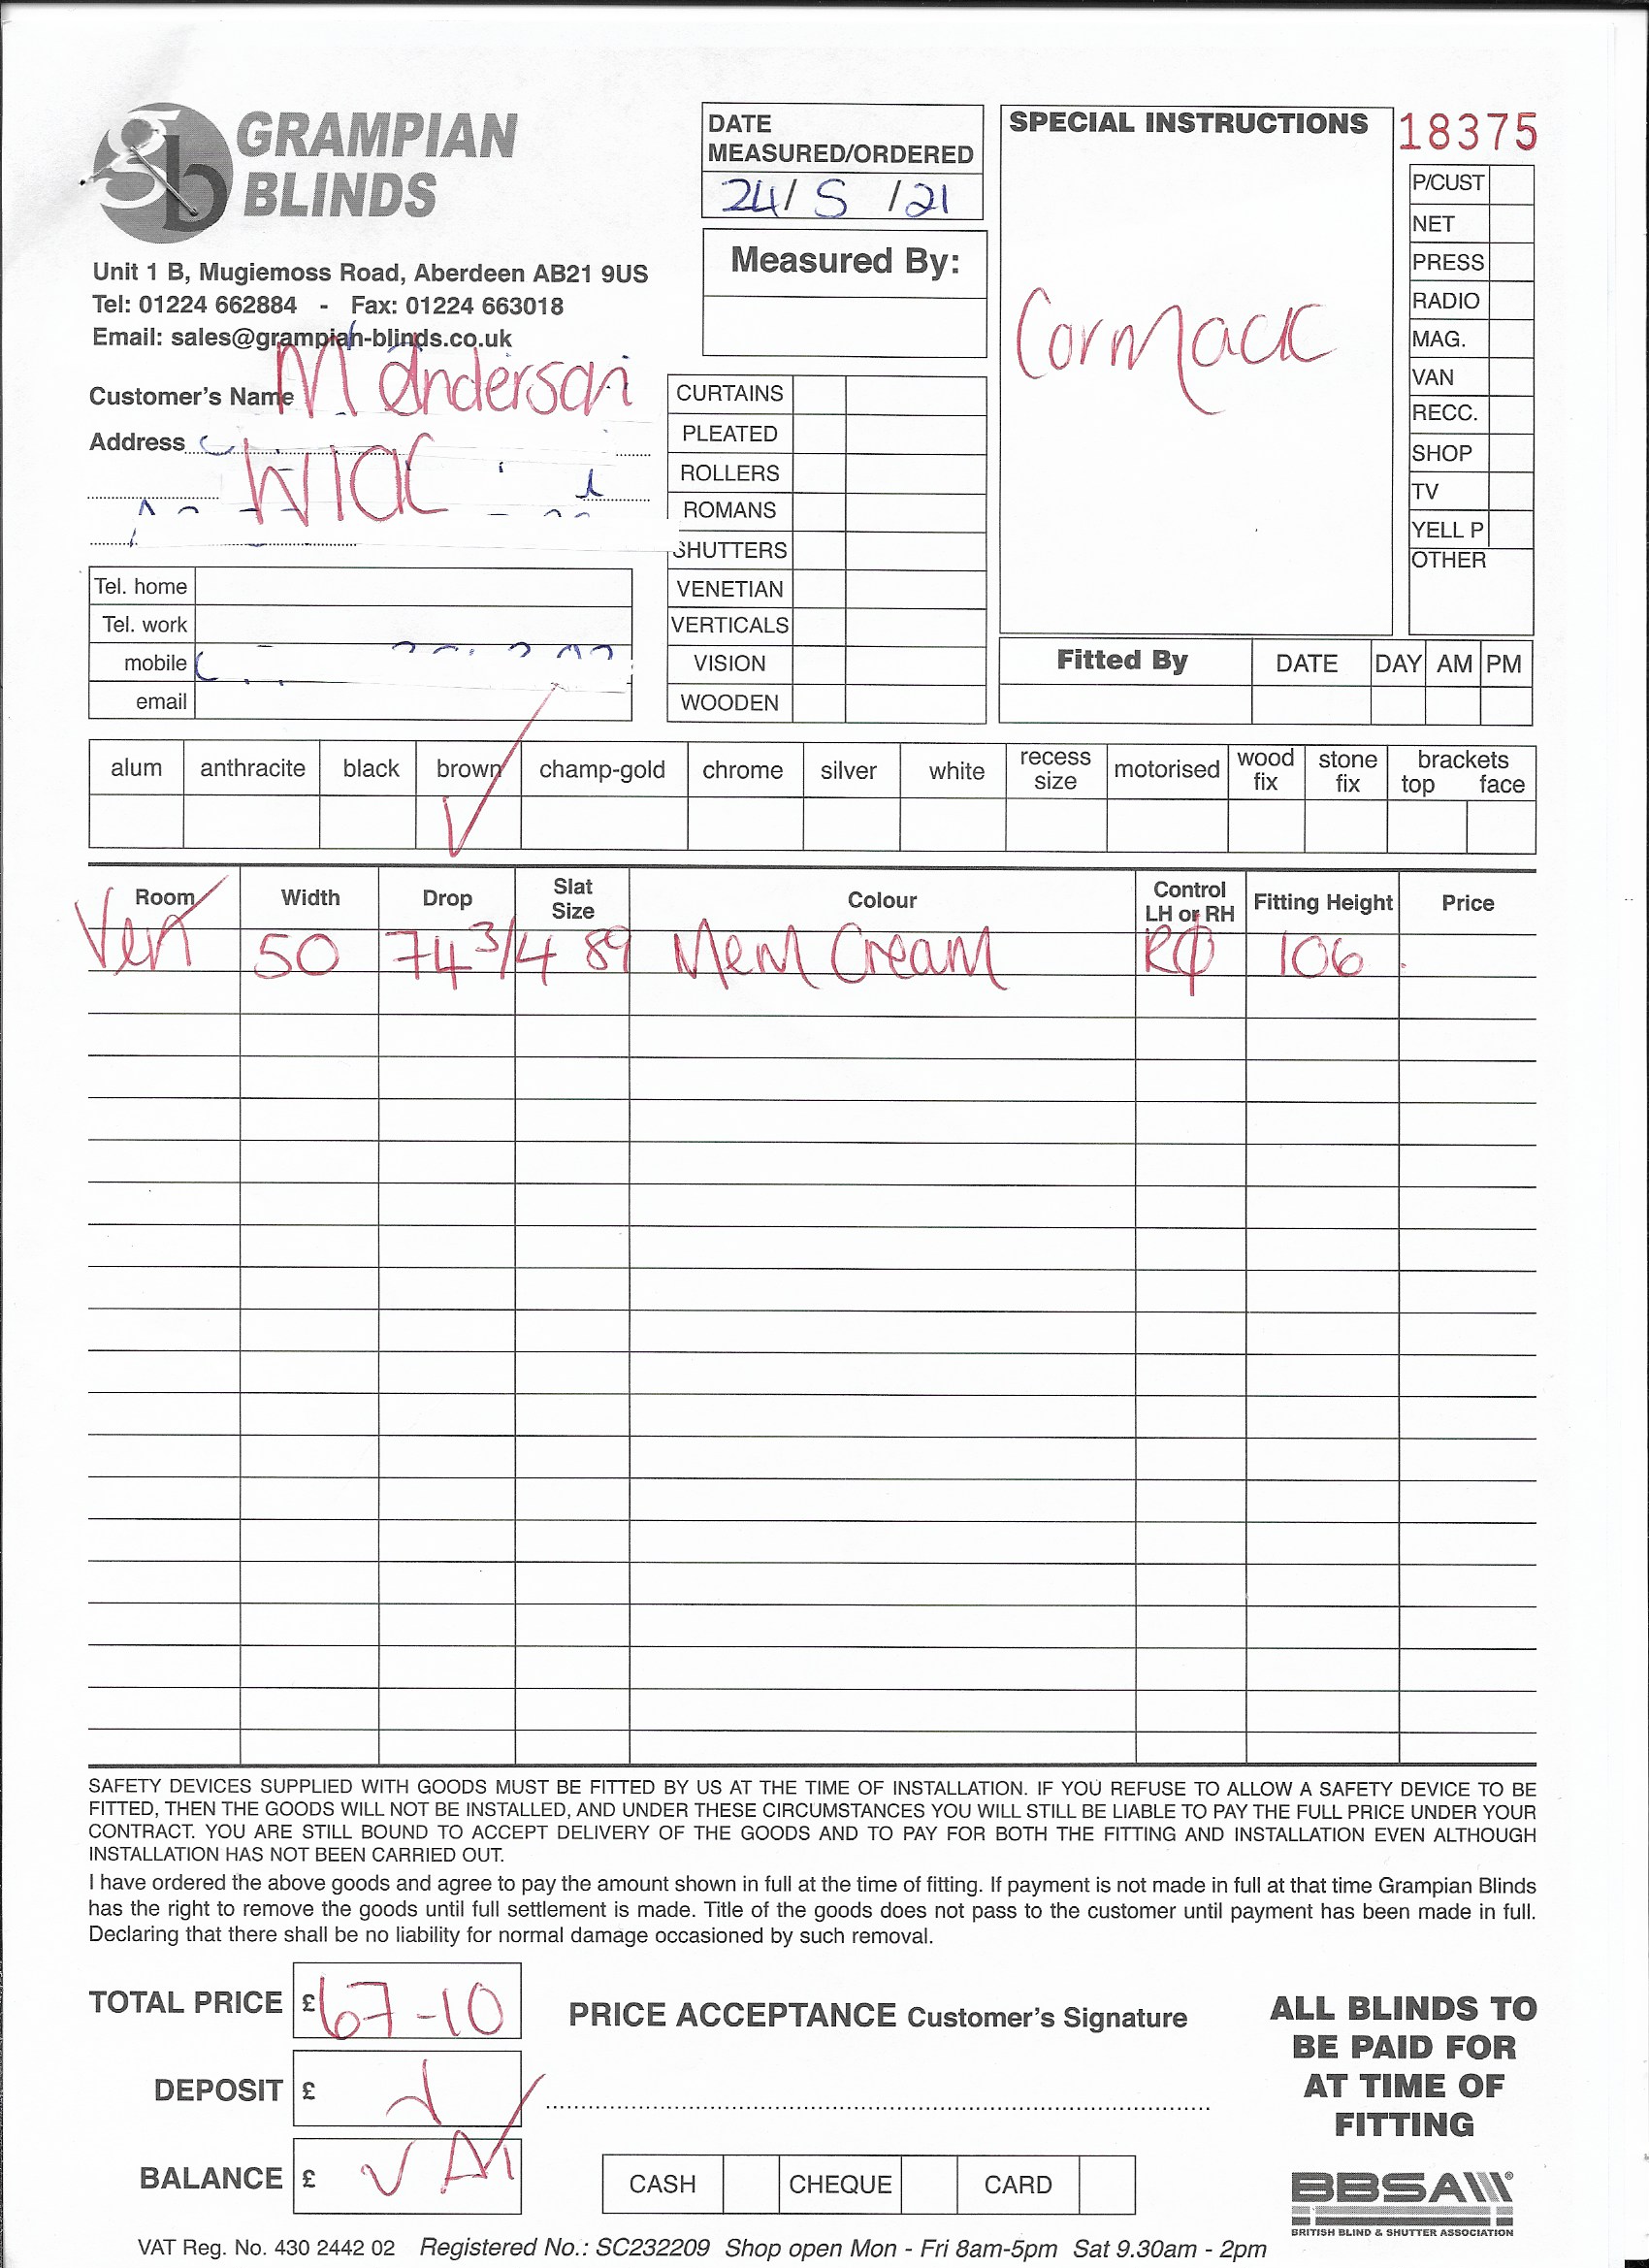 GRAMPIAN
BLINDS
Unit 1 B, Mugiemoss Road, Aberdeen AB21 9US
Tel: 01224 662884 - Fax: 01224 663018
Email: sales@grampian-blinds.co.uk
Customer's Name M Anderson
Address
WICK
Tel. home
Tel. work
mobile
email
DATE
MEASURED/ORDERED
24/ 5 /21
Measured By:
CURTAINS
PLEATED
ROLLERS
ROMANS
SHUTTERS
VENETIAN
VERTICALS
VISION
WOODEN
SPECIAL INSTRUCTIONS
Cormack
18375
P/CUST
NET
PRESS
RADIO
MAG.
VAN
RECC.
SHOP
TV
YELL P
OTHER
Fitted By DATE DAY AM PM
alum anthracite black brown champ-gold chrome silver white recess size motorised wood fix stone fix brackets top face
Room Width Drop Slat Size Colour Control LH or RH Fitting Height Price
50 74 3/4 89 Mem Cream 106
SAFETY DEVICES SUPPLIED WITH GOODS MUST BE FITTED BY US AT THE TIME OF INSTALLATION. IF YOU REFUSE TO ALLOW A SAFETY DEVICE TO BE
FITTED, THEN THE GOODS WILL NOT BE INSTALLED, AND UNDER THESE CIRCUMSTANCES YOU WILL STILL BE LIABLE TO PAY THE FULL PRICE UNDER YOUR
CONTRACT. YOU ARE STILL BOUND TO ACCEPT DELIVERY OF THE GOODS AND TO PAY FOR BOTH THE FITTING AND INSTALLATION EVEN ALTHOUGH
INSTALLATION HAS NOT BEEN CARRIED OUT.
I have ordered the above goods and agree to pay the amount shown in full at the time of fitting. If payment is not made in full at that time Grampian Blinds
has the right to remove the goods until full settlement is made. Title of the goods does not pass to the customer until payment has been made in full.
Declaring that there shall be no liability for normal damage occasioned by such removal.
TOTAL PRICE £67-10
DEPOSIT £
BALANCE £
PRICE ACCEPTANCE Customer's Signature
CASH CHEQUE CARD
ALL BLINDS TO
BE PAID FOR
AT TIME OF
FITTING
BBSA
BRITISH BLIND & SHUTTER ASSOCIATION
VAT Reg. No. 430 2442 02 Registered No.: SC232209 Shop open Mon - Fri 8am-5pm Sat 9.30am - 2pm